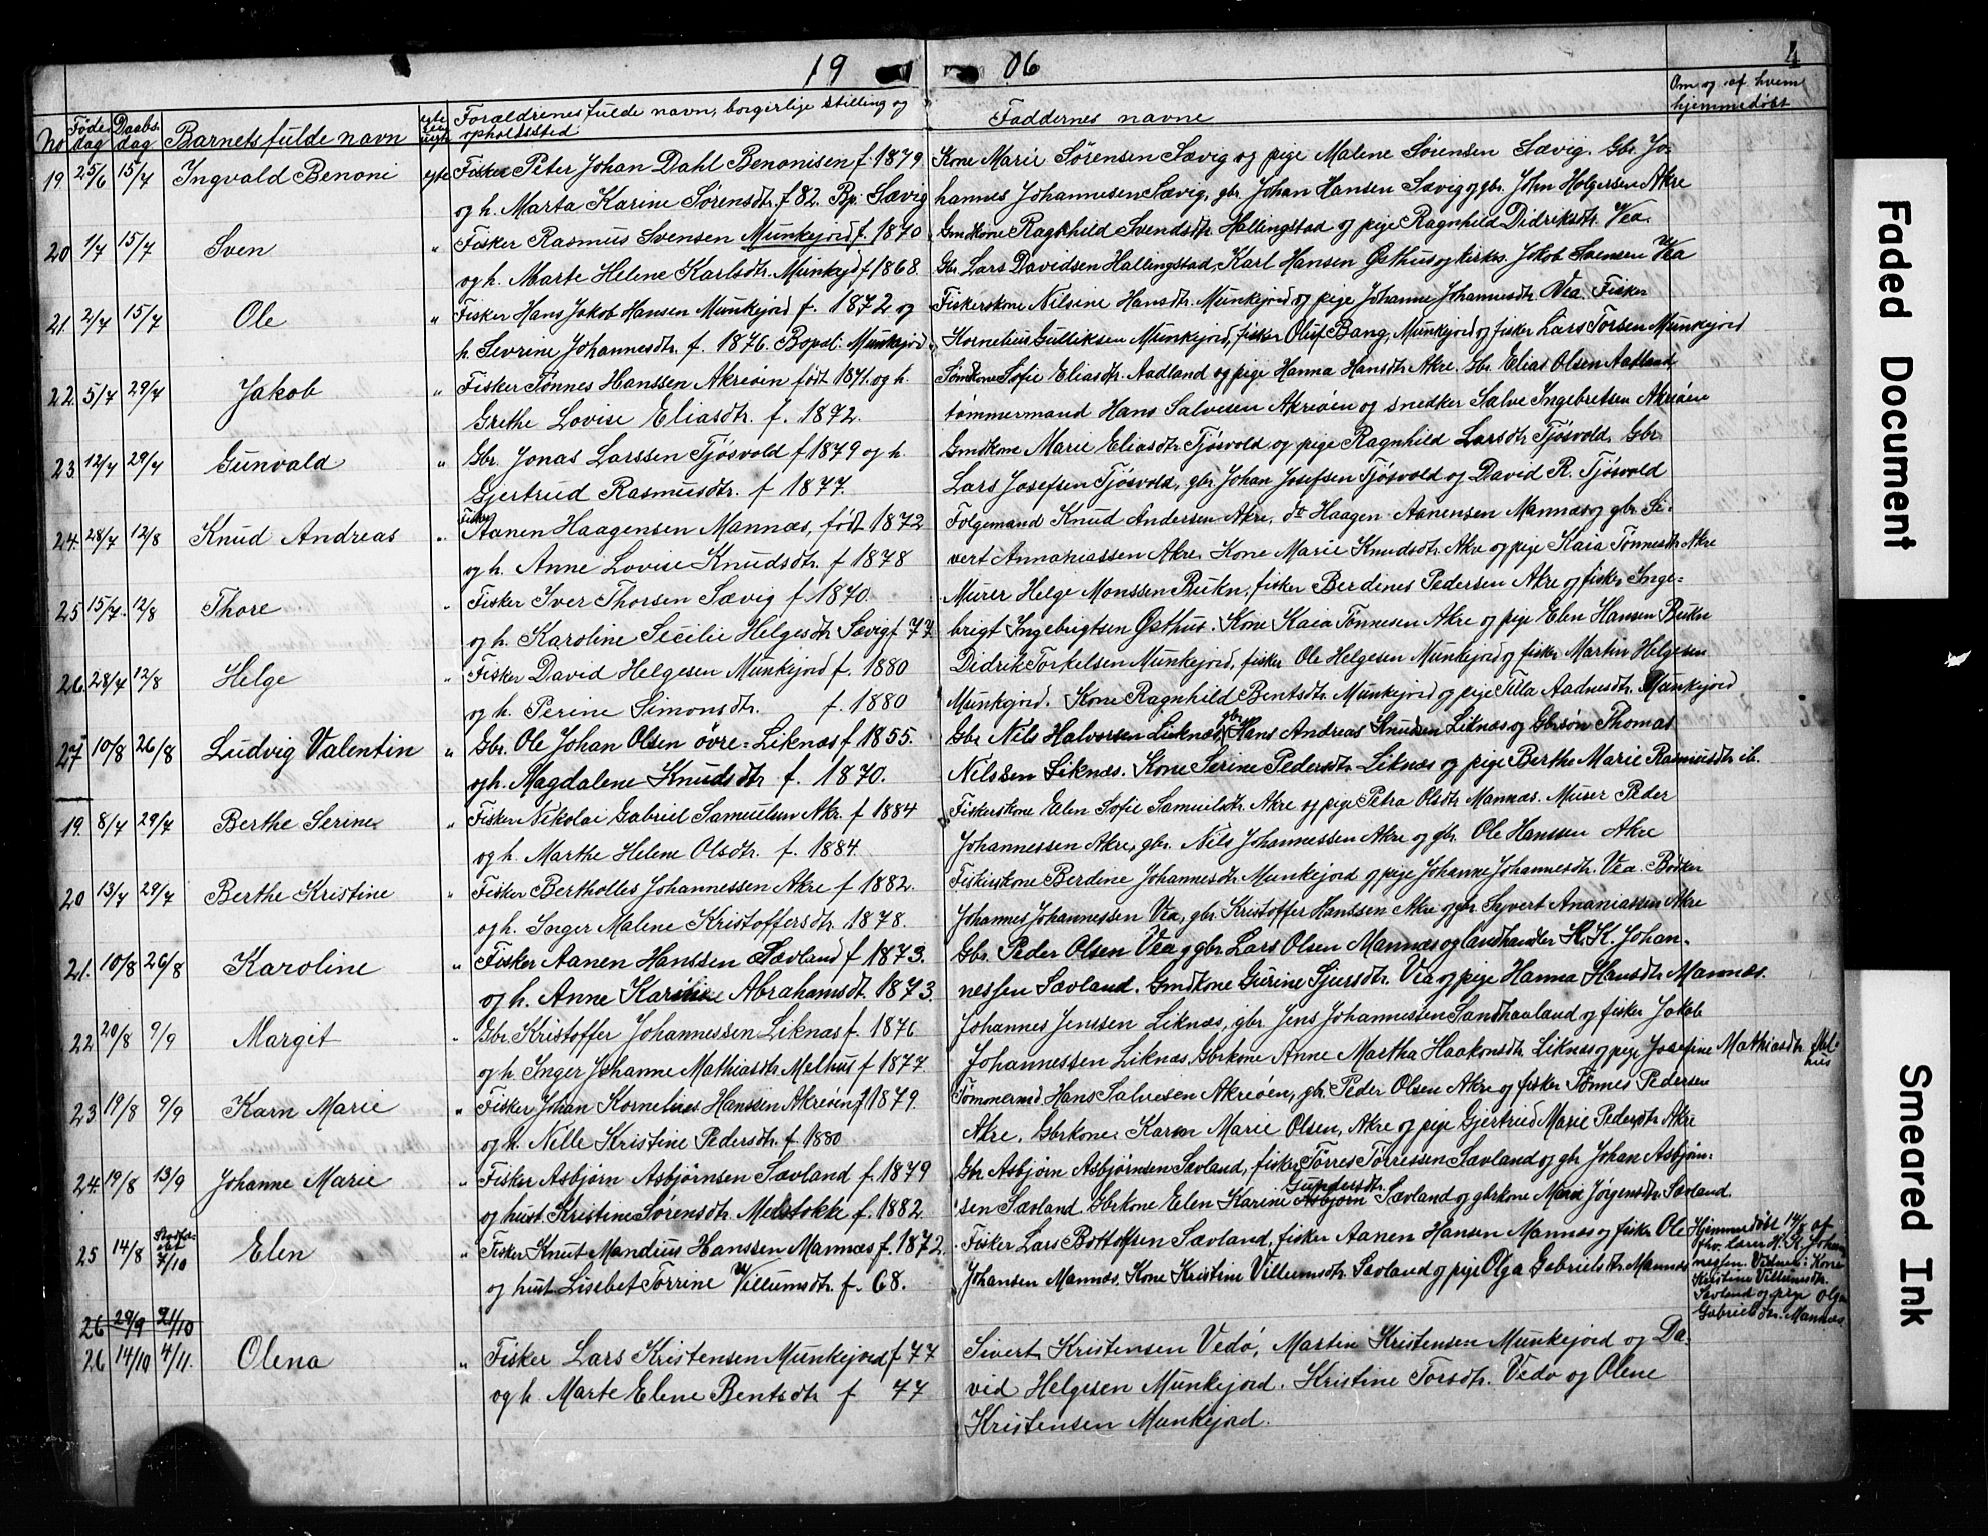 19 06
4
No Føde- dag Daabs- dag Barnets fulde navn egte eller uegte Forældrenes fulde navn, borgerlige stilling og opholdssted Faddernes navne Om og af hvem hjemmedøbt
19 25/6 15/7 Ingvald Benoni egte Fisker Peter Johan Dahl Benonisen f. 1879 Kone Marie Sørensen Sævig og pige Malene Sørensen Sævig. Gbr. Jo-
og h. Marta Karine Sørensdtr. f 82. Bp. Sævig hannes Johannesen Sævig, gbr. Johan Hansen Sævig og gbr. John Holgersen Akre
20 1/7 15/7 Sven " Fisker Rasmus Svensen Munkejord f. 1870 Gmdkone Ragnhild Svendsdtr. Hallingstad og pige Ragnhild Didriksdtr. Vea.
og h. Marte Helene Karlsdtr. Munkejd f 1868. Gbr. Lars Davidsen Hallingstad, Karl Hansen Østhus og kirkes. Jakob Svensen Vea
21. 2/7 15/7 Ole " Fisker Hans Jakob Hansen Munkejord f. 1872 og Fiskerskone Nilsine Hansdtr. Munkejord og pige Johanne Johannesdtr. Vea. Fisker
h. Sevrine Johannesdtr. f. 1876. Bopæl: Munkejord. Kornelius Gulliksen Munkejord, fisker Oluf Bang, Munkejord og fisker Lars Torsen Munkejord
22. 5/7 29/7 Jakob " Fisker Tønnes Hanssen Akreøen født 1871. og h. Sømkone Sofie Eliasdtr. Aadland og pige Hanna Hansdtr. Akre. Gbr. Elias Olsen Aadland
Grethe Lovise Eliasdtr. f. 1872. tømmermand Hans Salvesen Akreøen og snedker Salve Ingebretsen Akreøen
23. 12/7 29/7 Gunvald " Gbr. Jonas Larssen Tjøsvold f 1879 og h. Gmdkone Marie Eliasdtr. Tjøsvold og pige Ragnhild Larsdtr. Tjøsvold. Gbr.
Gjertrud Rasmusdtr. f 1877. Lars Josefsen Tjøsvold, gbr. Johan Josefsen Tjøsvold og David R. Tjøsvold
24. 28/7 12/8 Knud Andreas " Fisker Aanen Haagensen Mannæs, født 1872 Folgemand Knud Andersen Akre, do Haagen Aanensen Mannæs og gbr. Si-
og h. Anne Lovise Knudsdtr. f 1878 vert Annaniassen Akre. Kone Marie Knudsdtr. Akre og pige Kaia Tønnesdtr. Akre
25 15/7. 12/8 Thore " Fisker Iver Thorsen Sævig f 1870. Murer Helge Monssen Bukn, fisker Berdines Pedersen Akre og fisker Inge-
og h. Karoline Secilie Helgesdtr. Sævig f 77. brigt Ingebrigtsen Østhus. Kone Kaia Tønnesen Akre og pige Elen Hansen Bukn
26 28/7 12/8 Helge " Fisker David Helgesen Munkejord f. 1880 Didrik Torkelsen Munkejord, fisker Ole Helgesen Munkejord og fisker Martin Helgesen
og h. Perine Simonsdtr. f. 1880 Munkejord. Kone Ragnhild Bentsdtr. Munkejord og pige Tilla Aadnesdtr. Munkejord
27 10/8 26/8 Ludvig Valentin " Gbr. Ole Johan Olsen øvre-Liknæs f 1855. Gbr. Nils Halvorsen Liknæs, gbr. Hans Andreas Knudsen Liknæs og Gbrsøn Thomas
og h. Magdalene Knudsdtr f. 1870. Nilssen Liknæs. Kone Serine Pedersdtr. Liknæs og pige Berthe Marie Rasmusdtr ib.
19. 8/7 29/7 Berthe Serine " Fisker Nikolai Gabriel Samuelsen Akr. f 1884 Fiskerskone Elen Sofie Samuelsdtr. Akre og pige Petra Olsdtr. Mannæs. Murer Peder
og h. Marthe Helene Olsdtr. f. 1884. Johannessen Akre, gbr. Nils Johannessen Akre og gbr. Ole Hanssen Akre
20 13/7 29/7 Berthe Kristine " Fisker Bertholles Johannessen Akre f 1882. Fiskerskone Berdine Johannesdtr. Munkejord og pige Johanne Johannesdtr. Vea. Bødker
og h. Inger Malene Kristoffersdtr. 1878. Johannes Johannessen Vea, gbr. Kristoffer Hanssen Akre og gbr. Syvert Ananiassen Akre
21. 10/8 26/8 Karoline " Fisker Aanen Hanssen Sævland f 1873. Gbr. Peder Olsen Vea og gbr. Lars Olsen Mannæs og landhandler H. K. Johan-
og h. Anne Karine Abrahamsdt. 1873. nessen Sævland. Gmdkone Gurine Sjursdtr. Vea og pige Hanna Hansdtr. Mannæs.
22 20/8 9/9 Margit " Gbr. Kristoffer Johannessen Liknæs f. 1876 Johannes Jenssen Liknæs, gbr. Jens Johannessen Sandhaaland og fisker Jakob
og h. Inger Johanne Mathiasdtr. Melhus f 1877. Johannessen Liknæs. Gbrkone Anne Martha Haakonsdtr. Liknæs og pige Josefine Mathiasdtr. Mel-
hus
23 19/8 9/9 Karn Marie " Fisker Johan Kornelius Hanssen Akreøen f 1879. Tømmermd. Hans Salvesen Akreøen, gbr. Peder Olsen Akre og fisker Tønnes Pedersen
og h. Nelle Kristine Pedersdtr. f 1880 Akre. Gbrkone Karen Marie Olsen, Akre og pige Gjertrud Marie Pedersdtr. Akre
24. 19/8 13/9 Johanne Marie " Fisker Asbjørn Asbjørnsen Sævland f. 1879 Gbr Asbjørn Asbjørnsen Sævland, fisker Tørres Tørrissen Sævland og gbr. Johan Asbjørn-
og hust. Kristine Sørensdtr. Medstokke f. 1882. sen Sævland. Gbrkone Elen Karine Gundersdtr. Asbjørn Sævland og gbrkone Marie Jørgensdtr. Sævland.
25 14/8 Stadfæstet 7/10 Elen " Fisker Knut Mandius Hanssen Mannæs f. 1872. Fisker Lars Bottolfsen Sævland, fisker Aanen Hansen Mannæs og fisker Ole Hjemmedøbt 14/8 af
og hust. Lisebet Torrine Villumsdtr. f. 68. Johansen Mannæs. Kone Kristine Villumsdtr. Sævland og pige Olga Gabrielsdtr. Mannæs fhv. lærer H. K. Johan
nessen. Vidner: Kone
Kristine Villumsdtr.
Sævland og pige Olga
Gabrielsdtr. Mannæs.
26 29/9 21/10
26 14/10 4/11. Olena " Fisker Lars Kristensen Munkejord f 77 Sivert Kristensen Vedø, Martin Kristensen Munkejord og Da-
og h. Marte Elene Bentsdtr f 77 vid Helgesen Munkejord. Kristine Torsdtr. Vedø og Olene
Kristensen Munkejord.
Faded Document
Smeared Ink